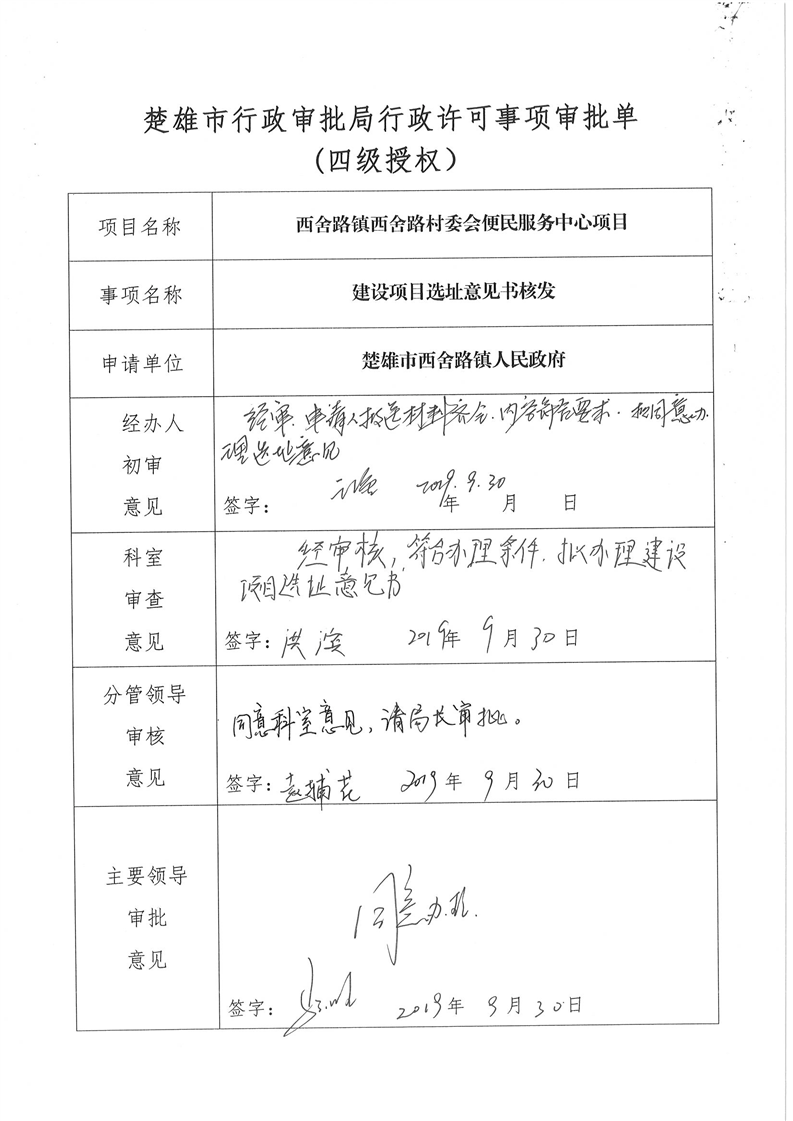 楚雄市行政审批局行政许可事项审批单
(四级授权)
项目名称
西舍路镇西舍路村委会便民服务中心项目
事项名称
建设项目选址意见书核发
申请单位
楚雄市西舍路镇人民政府
经办人
初审
意见
经审、申请人报送材料齐全、内容符合要求、拟同意办
理选址意见
签字：
2019.9.30
年 月 日
科室
审查
意见
经审核，符合办理条件、拟办理建设
项目选址意见书
签字：洪滨 2019年9月30日
分管领导
审核
意见
同意科室意见，请局长审批。
签字：
2019年9月30日
主要领导
审批
意见
同意办理.
签字：
2019年9月30日